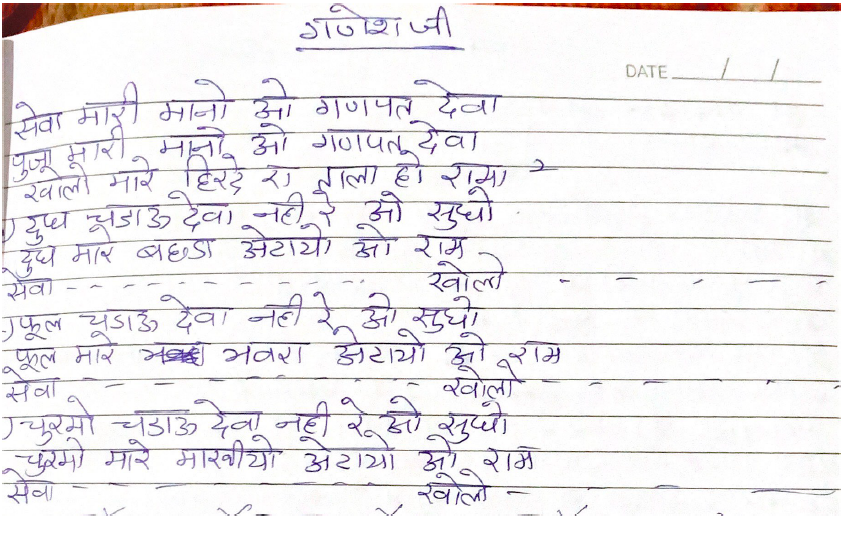 गणेश जी
DATE / /
सेवा मारी मानो ओ गणपत देवा
पुजा मारी मानो ओ गणपत देवा
खोलो मारे हिरदे रा ताला हो रामा २
) दुध चडाऊ देवा नही रे ओ सुधो
दुध मारे बछडा अेटायो ओ राम
सेवा - - - - - - - - - - - खोलो - - - - -
) फूल चडाऊ देवा नही रे ओ सुधो
फूल मारे भवरा अेटायो ओ राम
सेवा - - - - - - - - - खोलो - - - - -
) चुरमो चडाऊ देवा नही रे ओ सुधो
चुरमो मारे माखीयो अेटायो ओ राम
सेवा - - - - - - - - - खोलो - - - -